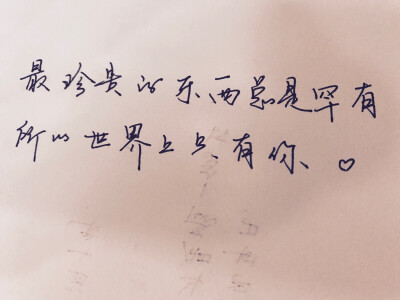 最珍贵的东西总是罕有
所以世界上只有你、♡